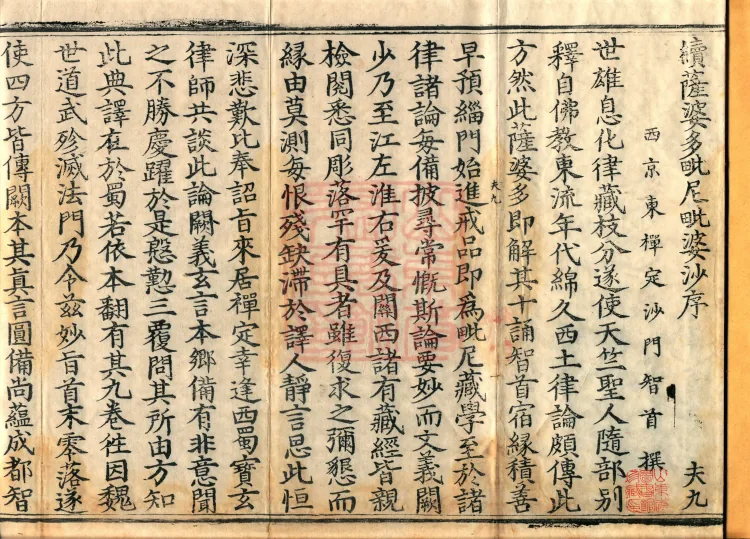 續薩婆多毗尼毗婆沙序
夫九
西京東禪定沙門智首撰
世雄息化律藏枝分遂使天竺聖人隨部別
釋自佛教東流年代綿久西土律論頗傳此
方然此薩婆多即解其十誦智首宿緣積善
早預緇門始進戒品即為毗尼藏學至於諸
夫九
律諸論每備披尋常慨斯論要妙而文義闕
少乃至江左淮右爰及關西諸有藏經皆親
檢閱悉同彫落罕有具者雖復求之彌懇而
緣由莫測每恨殘缺滯於譯人靜言思此恒
深悲歎比奉詔旨來居禪定幸逢西蜀寶玄
律師共談此論闕義玄言本鄉備有非意聞
之不勝慶躍於是慇懃三覆問其所由方知
此典譯在於蜀若依本翻有其九卷往因魏
世道武殄滅法門乃令茲妙旨首末零落遂
使四方皆傳闕本其真言圓備尚蘊成都智